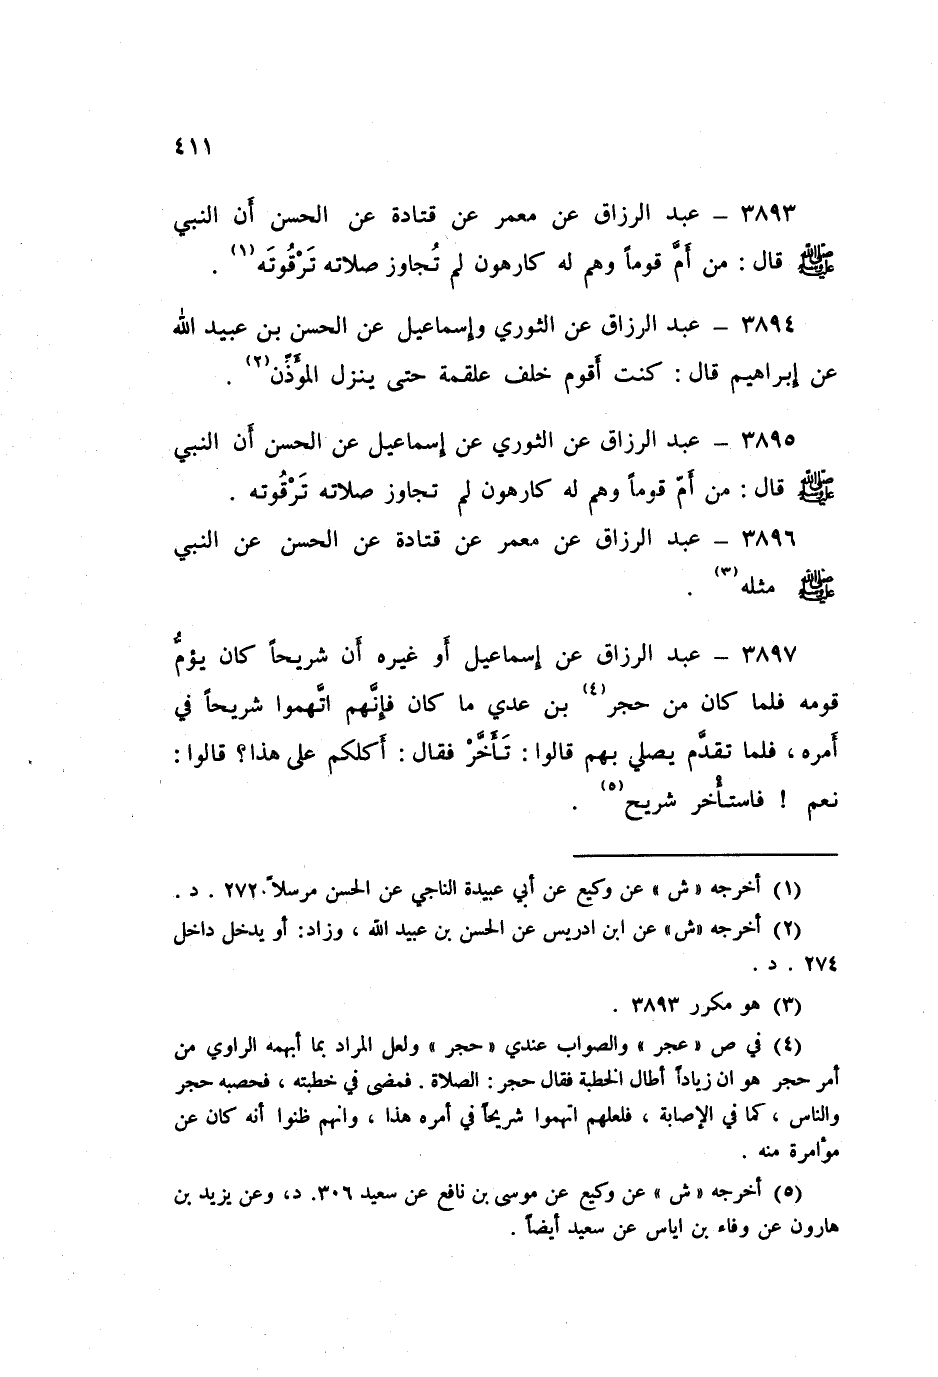 ٤١١
٣٨٩٣ – عبد الرزاق عن معمر عن قتادة عن الحسن أَن النبي
ﷺ قال : من أَمَّ قوماً وهم له كارهون لم تُجاوز صلاته تَرْقُوتَه(١) .
٣٨٩٤ – عبد الرزاق عن الثوري وإسماعيل عن الحسن بن عبيد الله
عن إبراهيم قال : كنت أَقوم خلف علقمة حتى ينزل المؤَذِّن(٢) .
٣٨٩٥ – عبد الرزاق عن الثوري عن إسماعيل عن الحسن أَن النبي
ﷺ قال : من أَمّ قوماً وهم له كارهون لم تجاوز صلاته تَرْقُوته .
٣٨٩٦ – عبد الرزاق عن معمر عن قتادة عن الحسن عن النبي
ﷺ مثله(٣) .
٣٨٩٧ – عبد الرزاق عن إسماعيل أَو غيره أَن شريحاً كان يؤمُّ
قومه فلما كان من حجر(٤) بن عدي ما كان فإنَّهم اتَّهموا شريحاً في
أَمره ، فلما تقدَّم يصلي بهم قالوا : تَأَخَّرْ فقال : أَكلكم على هذا؟ قالوا :
نعم ! فاستأْخر شريح(٥) .
(١) أخرجه «ش» عن وكيع عن أبي عبيدة الناجي عن الحسن مرسلاً ٢٧٢٠ . د .
(٢) أخرجه «ش» عن ابن ادريس عن الحسن بن عبيد الله ، وزاد: أو يدخل داخل
٢٧٤ . د .
(٣) هو مكرر ٣٨٩٣ .
(٤) في ص «عجر» والصواب عندي «حجر» ولعل المراد بما أبهمه الراوي من
أمر حجر هو ان زياداً أطال الخطبة فقال حجر : الصلاة . فمضى في خطبته ، فحصبه حجر
والناس ، كما في الإصابة ، فلعلهم اتهموا شريحاً في أمره هذا ، وانهم ظنوا أنه كان عن
مؤامرة منه .
(٥) أخرجه «ش» عن وكيع عن موسى بن نافع عن سعيد ٣٠٦. د، وعن يزيد بن
هارون عن وفاء بن اياس عن سعيد أيضاً .